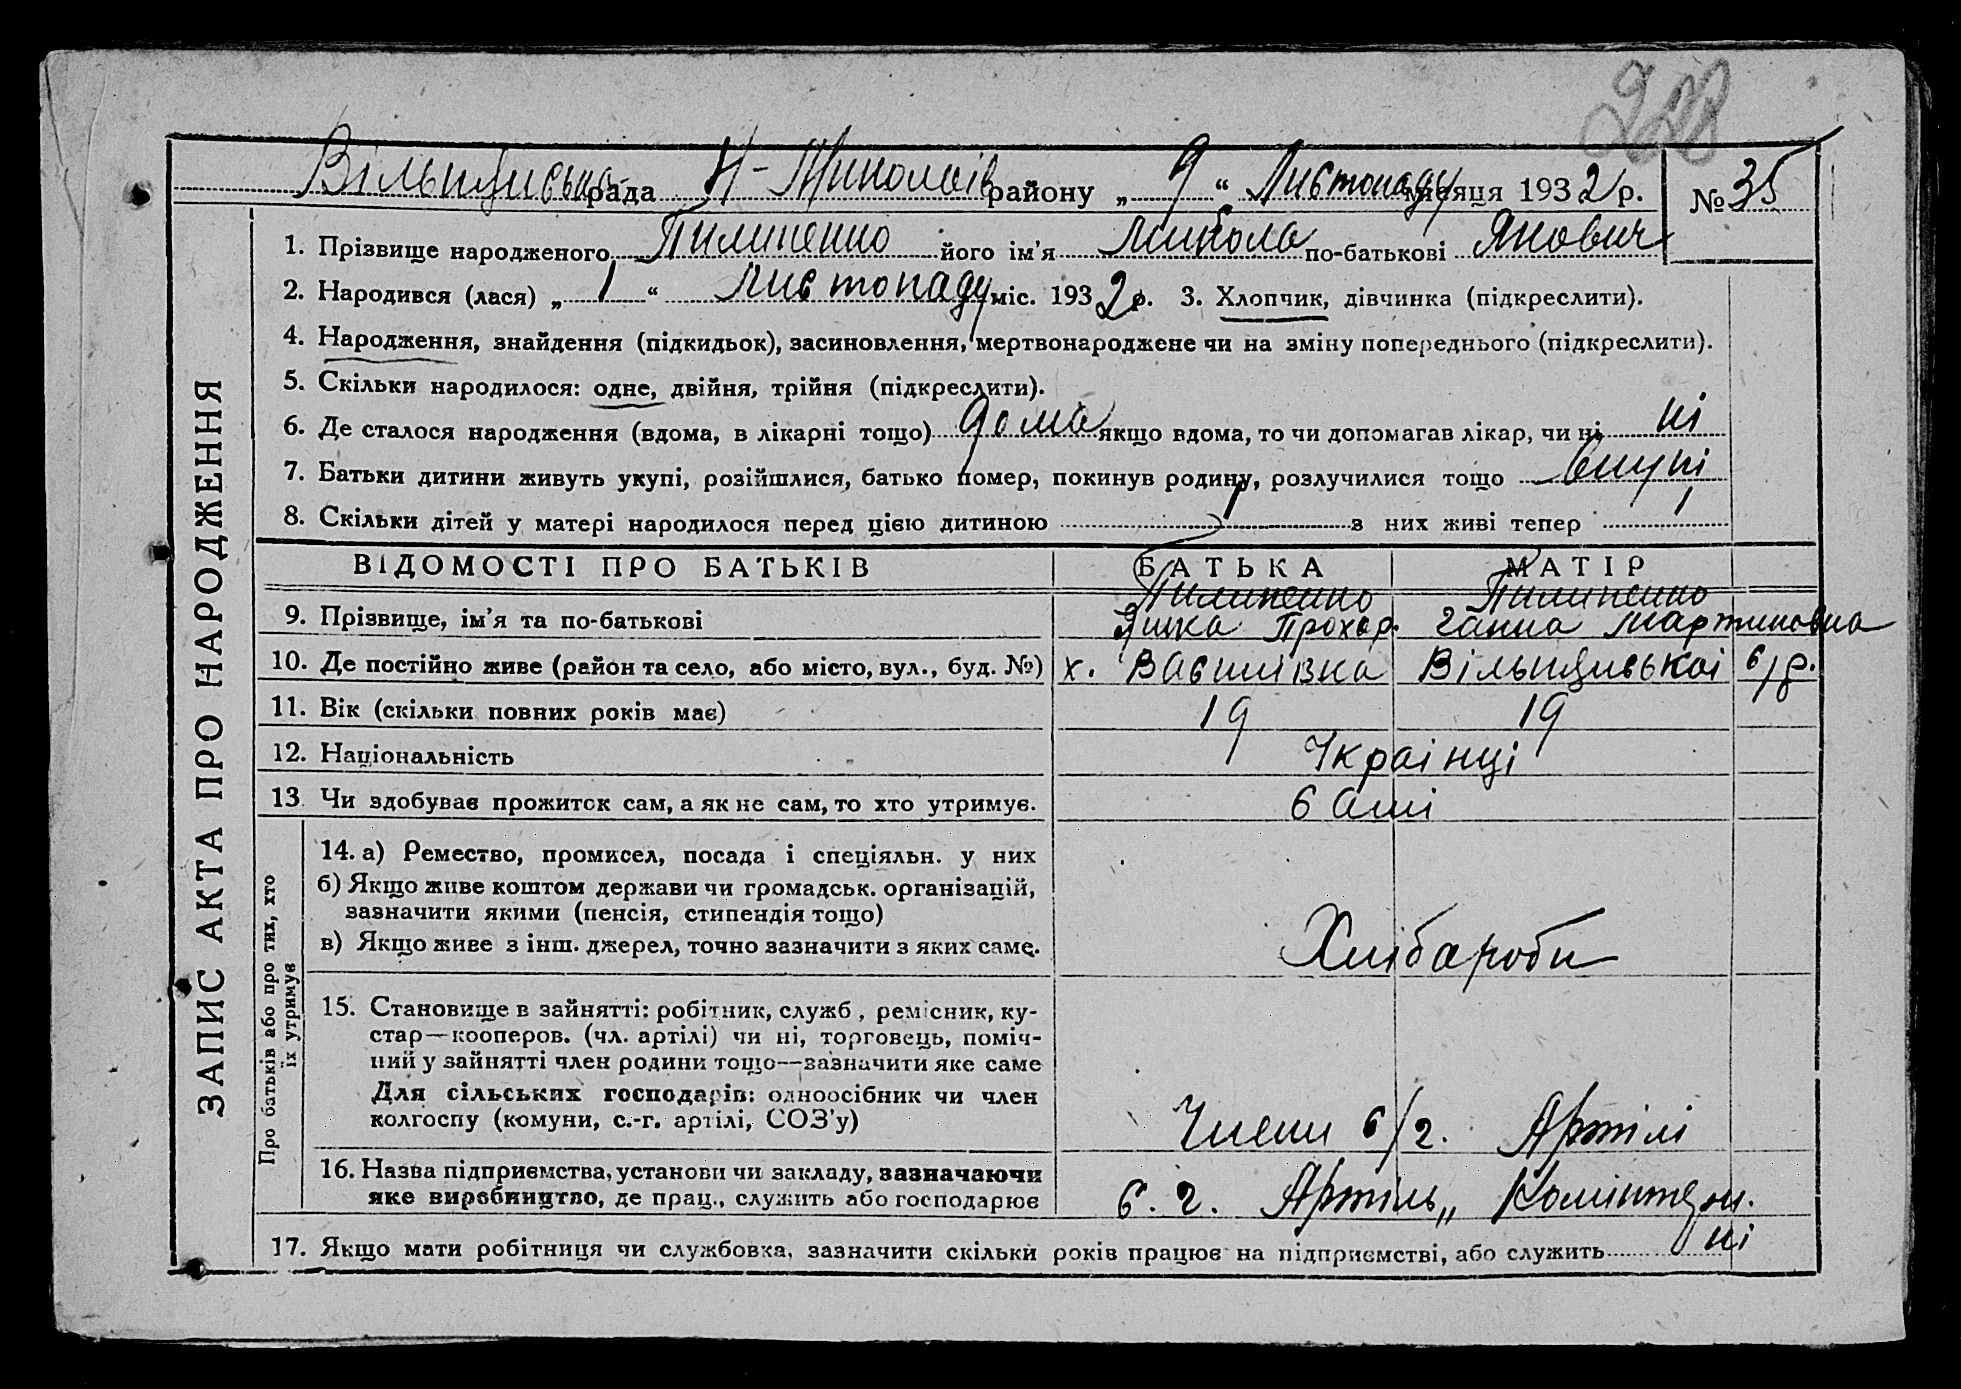 228
Вільнянська рада Н-Миколаїв району „ 9 “ Листопаду місяця 1932 р. № 35
1. Прізвище народженого Пилипенко його ім'я Микола по-батькові Якович
2. Народився (лася) „ 1 “ Листопаду міс. 1932 р. 3. Хлопчик, дівчинка (підкреслити).
4. Народження, знайдення (підкидьок), засиновлення, мертвонароджене чи на зміну попереднього (підкреслити).
5. Скільки народилося: одне, двійня, трійня (підкреслити).
6. Де сталося народження (вдома, в лікарні тощо) дома якщо вдома, то чи допомагав лікар, чи ні ні
7. Батьки дитини живуть укупі, розійшлися, батько помер, покинув родину, розлучилися тощо вкупі
8. Скільки дітей у матері народилося перед цією дитиною 1 з них живі тепер 1
ВІДОМОСТІ ПРО БАТЬКІВ БАТЬКА МАТІР
Пилипенко Пилипенко
9. Прізвище, ім'я та по-батькові Яшка Прохор. Ганна Мартиновна
10. Де постійно живе (район та село, або місто, вул., буд. №) х. Василівка с/р.
11. Вік (скільки повних років має) 19 19
12. Національність Українці
13. Чи здобуває прожиток сам, а як не сам, то хто утримує. самі
14. а) Ремество, промисел, посада і спеціяльн. у них
б) Якщо живе коштом держави чи громадськ. організацій,
зазначити якими (пенсія, стипендія тощо)
в) Якщо живе з інш. джерел, точно зазначити з яких саме. Хлібароби
15. Становище в зайнятті: робітник, служб., ремісник, ку-
стар—кооперов. (чл. артілі) чи ні, торговець, поміч-
ний у зайнятті член родини тощо—зазначити яке саме
Для сільських господарів: одноосібник чи член
колгоспу (комуни, с.-г. артілі, СОЗ'у) Члени с/г. Артілі
16. Назва підприємства, установи чи закладу, зазначаючи
яке виробництво, де прац., служить або господарює с. г. Артіль „ Комінтерн.
17. Якщо мати робітниця чи службовка, зазначити скільки років працює на підприємстві, або служить ні
ЗАПИС АКТА ПРО НАРОДЖЕННЯ
Про батьків або про тих, хто
їх утримує